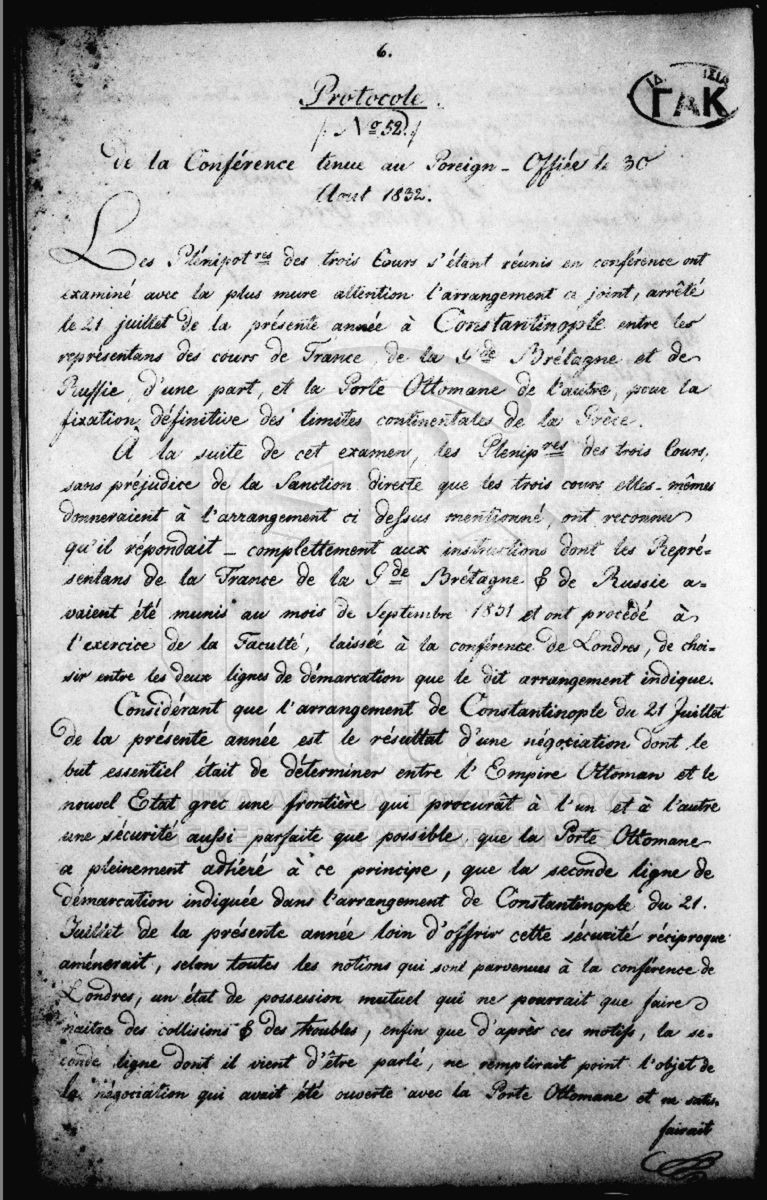 6.
Protocole.
(N.º 52.)
de la Conférence tenue au Foreign-Office le 30
Aout 1832.
Les Plénipot.res des trois Cours s'étant réunis en conférence ont
examiné avec la plus mure attention l'arrangement ci joint, arrêté
le 21 juillet de la présente année à Constantinople entre les
représentans des cours de France, de la G.de Brétagne et de
Russie, d'une part, et la Porte Ottomane de l'autre, pour la
fixation définitive des limites continentales de la Grèce.
A la suite de cet examen, les Plenip.res des trois Cours,
sans préjudice de la Sanction directe que les trois cours elles-mêmes
donneraient à l'arrangement ci dessus mentionné, ont reconnu
qu'il répondait complettement aux instructions dont les Repré-
sentans de la France de la G.de Brétagne & de Russie a-
vaient été munis au mois de Septembre 1831 et ont procédé à
l'exercice de la Faculté, laissée à la conférence de Londres, de choi-
sir entre les deux lignes de démarcation que le dit arrangement indique.
Considérant que l'arrangement de Constantinople du 21 Juillet
de la présente année est le résultat d'une négociation dont le
but essentiel était de déterminer entre l'Empire Ottoman et le
nouvel Etat grec une frontière qui procurât à l'un et à l'autre
une sécurité aussi parfaite que possible, que la Porte Ottomane
a pleinement adhéré à ce principe, que la seconde ligne de
démarcation indiquée dans l'arrangement de Constantinople du 21.
Juillet de la présente année loin d'offrir cette sécurité réciproque
aménerait, selon toutes les notions qui sont parvenues à la conférence de
Londres, un état de possession mutuel qui ne pourrait que faire
naitre des collisions & des troubles, enfin que d'après ces motifs, la se-
conde ligne dont il vient d'être parlé, ne remplirait point l'objet de
la négociation qui avait été ouverte avec la Porte Ottomane et ne satis
fairait
ΓΑΚ